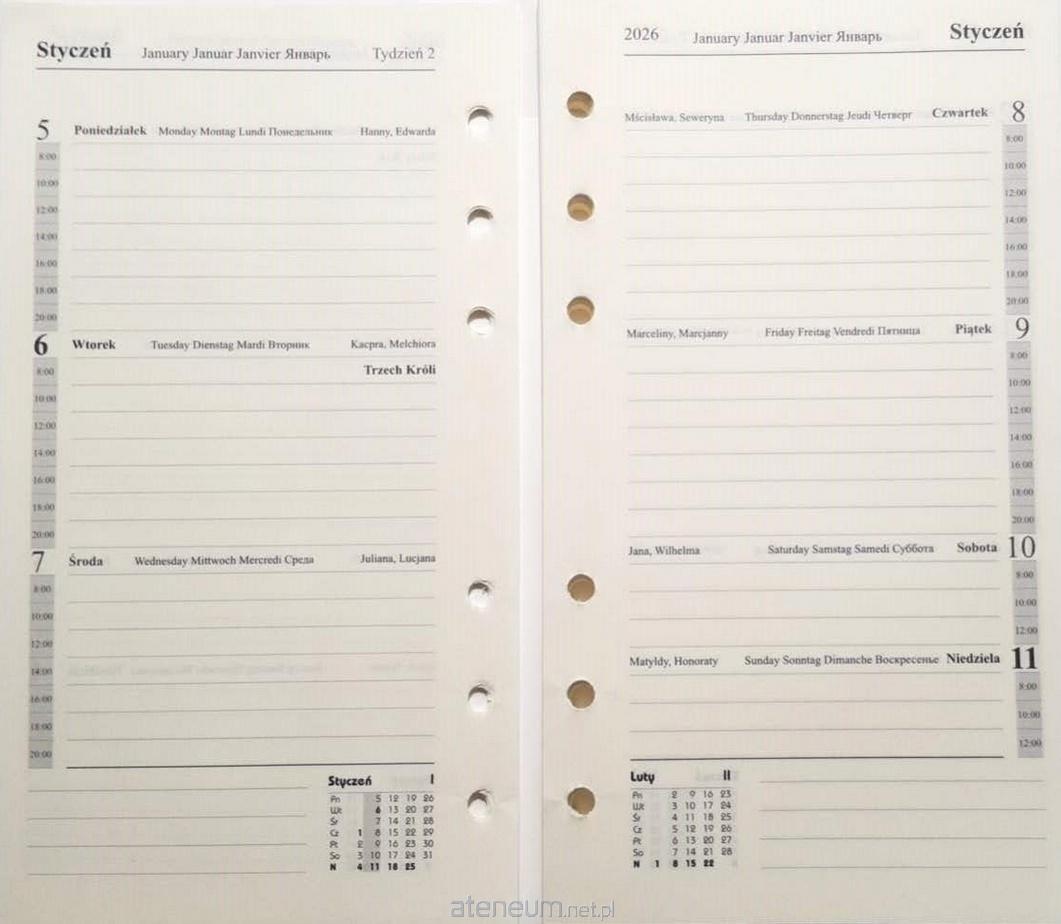 Styczeń January Januar Janvier Январь Tydzień 2
5 Poniedziałek Monday Montag Lundi Понедельник Hanny, Edwarda
8:00
10:00
12:00
14:00
16:00
18:00
20:00
6 Wtorek Tuesday Dienstag Mardi Вторник Kacpra, Melchiora
8:00 Trzech Króli
10:00
12:00
14:00
16:00
18:00
20:00
7 Środa Wednesday Mittwoch Mercredi Среда Juliana, Lucjana
8:00
10:00
12:00
14:00
16:00
18:00
20:00
Styczeń I
Pn 5 12 19 26
Wt 6 13 20 27
Śr 7 14 21 28
Cz 1 8 15 22 29
Pt 2 9 16 23 30
So 3 10 17 24 31
N 4 11 18 25
2026 January Januar Janvier Январь Styczeń
Mścisława, Seweryna Thursday Donnerstag Jeudi Четверг Czwartek 8
8:00
10:00
12:00
14:00
16:00
18:00
20:00
Marceliny, Marcjanny Friday Freitag Vendredi Пятница Piątek 9
8:00
10:00
12:00
14:00
16:00
18:00
20:00
Jana, Wilhelma Saturday Samstag Samedi Суббота Sobota 10
8:00
10:00
12:00
Matyldy, Honoraty Sunday Sonntag Dimanche Воскресенье Niedziela 11
8:00
10:00
12:00
Luty II
Pn 2 9 16 23
Wt 3 10 17 24
Śr 4 11 18 25
Cz 5 12 19 26
Pt 6 13 20 27
So 7 14 21 28
N 1 8 15 22
ateneum.net.pl